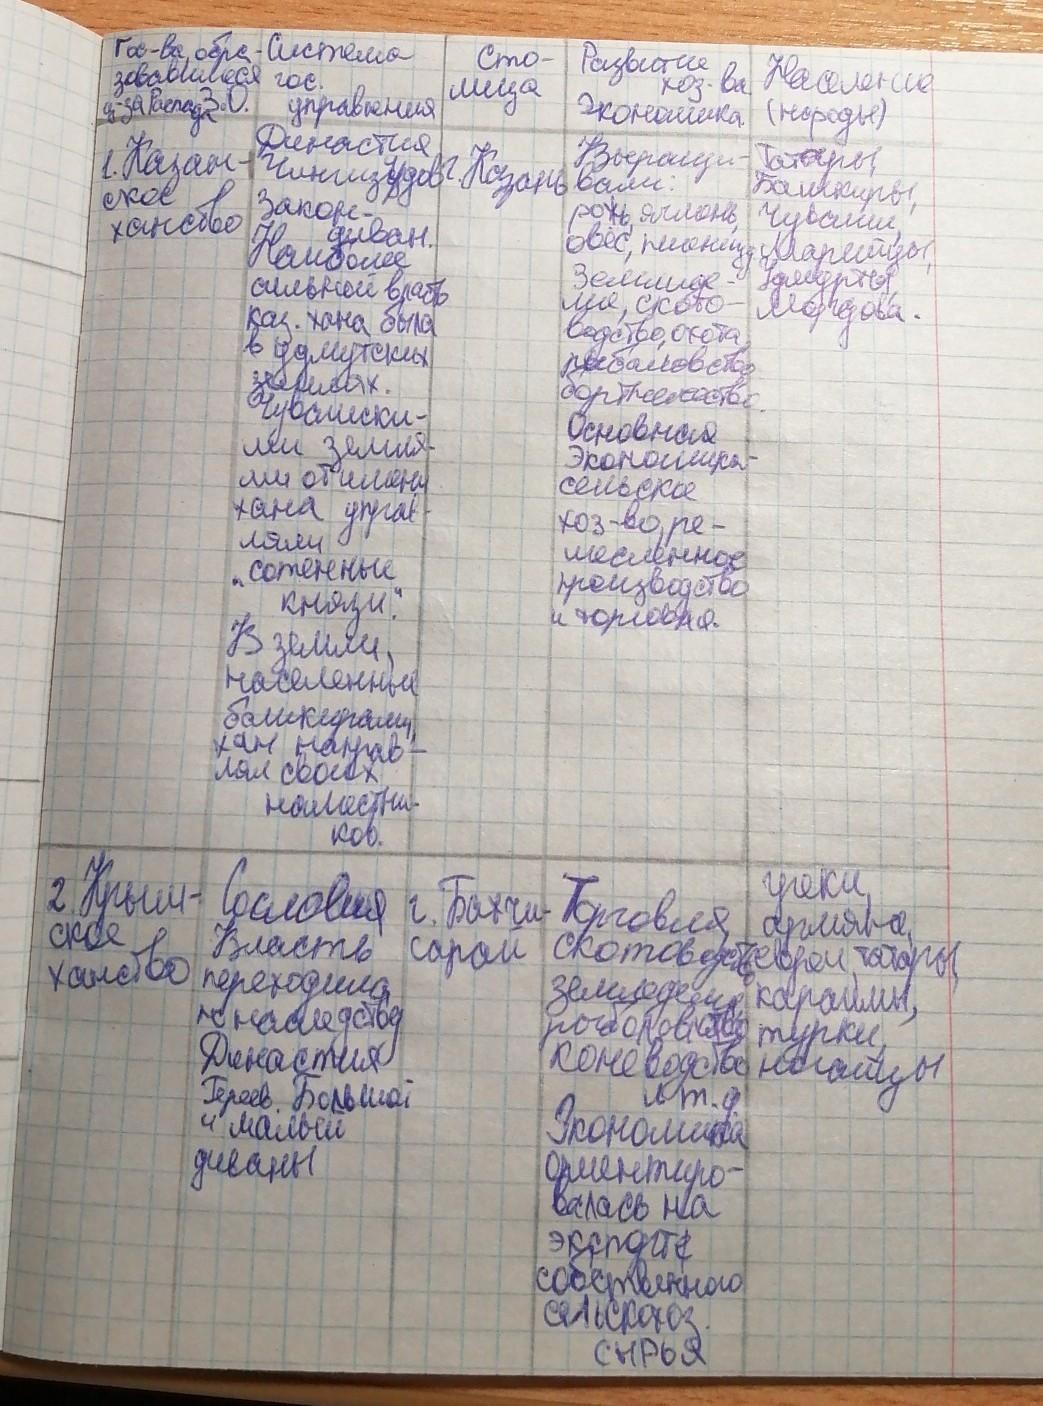 Гос-ва, обра-
зовавшиеся
из-за распада З.О.
Система
гос.
управления
Сто-
лица
Развитие
хоз-ва
Экономика
Население
(народы)
1. Казан-
ское
ханство
Династия
Чингизудов
Закон-
диван.
Наиболее
сильной власть
каз. хана была
в удмутских
землях.
Чувашски-
ми земля-
ми от имени
хана управ-
ляли
„сотенные
князи".
В земли,
населенные
башкирами,
хан направ-
лял своих
наместни-
ков.
г. Казань
Выращи-
вали:
рожь, ячмень,
овёс, пшеницу
Земледе-
лие, ското-
водство, охота,
рыболовство
бортничество.
Основная
экономика-
сельское
хоз-во, ре-
месленное
производство
и торговля.
Татары,
Башкиры,
Чуваши,
Марийцы,
Удмурты,
Мордова.
2. Крым-
ское
ханство
Сословия
Власть
переходила
по наследству
Династия
Гереев. Большой
и малый
диваны
г. Бахчи-
сарай
Торговля,
скотоводство
земледелие,
рыболовство
коневодство
и т.д.
Экономика
ориентиро-
валась на
экспорте
собственного
сельскохоз.
сырья
греки,
армяне,
евреи, татары,
караимы,
турки,
ногайцы